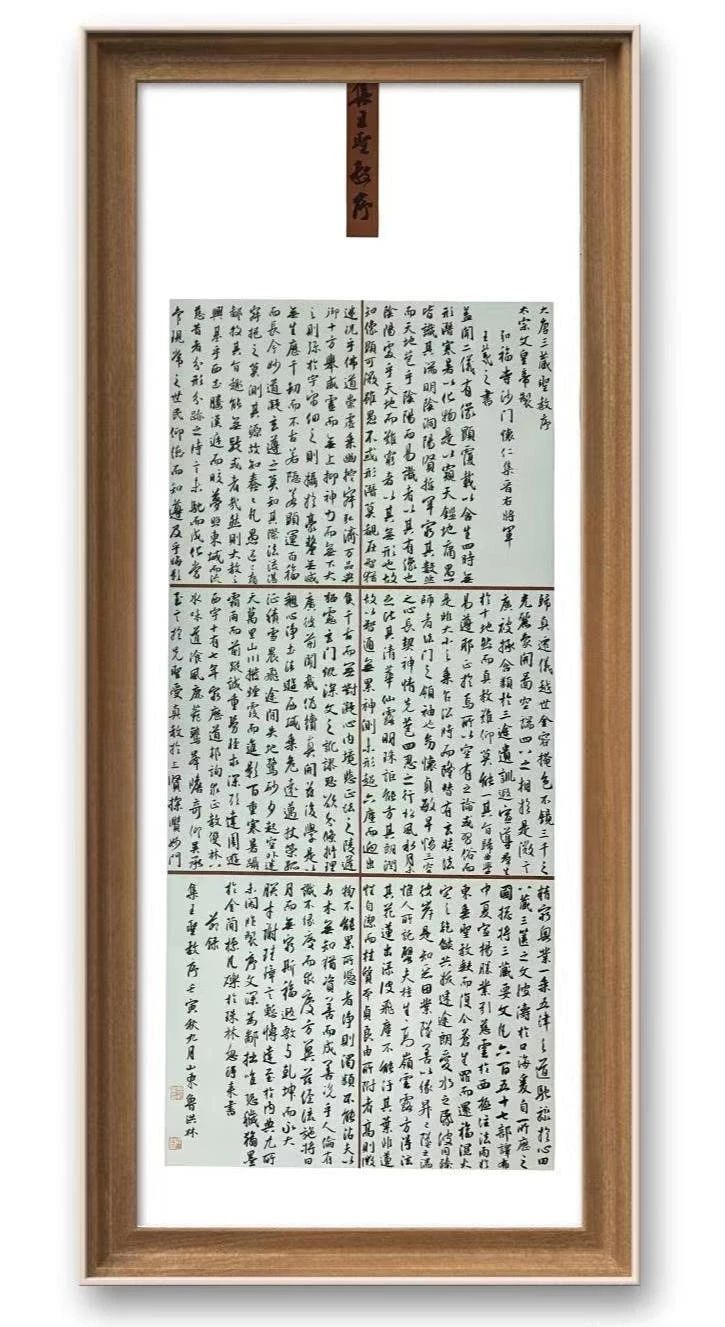 集王聖教序
大唐三藏聖教序
太宗文皇帝製
弘福寺沙門懷仁集晉右將軍
王羲之書
蓋聞二儀有像顯覆載以含生四時無
形潛寒暑以化物是以窺天鑑地庸愚
皆識其端明陰洞陽賢哲罕窮其數然
而天地苞乎陰陽而易識者以其有像也
陰陽處乎天地而難窮者以其無形也故
知像顯可徵雖愚不惑形潛莫覩在智猶
迷況乎佛道崇虛乘幽控寂弘濟万品典
御十方舉威靈而無上抑神力而無下大
之則彌於宇宙細之則攝於豪釐無滅
無生歷千劫而不古若隱若顯運百福
而長今妙道凝玄遵之莫知其際法流湛
寂挹之莫測其源故知蠢蠢凡愚區區庸
鄙投其旨趣能無疑惑者哉然則大教之
興基乎西土騰漢庭而皎夢照東域而流
慈昔者分形分跡之時言未馳而成化當
常現常之世民仰德而知遵及乎晦影
歸真遷儀越世金容掩色不鏡三千之
光麗象開圖空端四八之相於是微言
廣被拯含類於三途遺訓遐宣導群生
於十地然而真教難仰莫能一其旨歸曲學
易遵邪正於焉所以空有之論或習俗而
是非大小之乘乍沿時而隆替有玄奘法
師者法門之領袖也幼懷貞敏早悟三空
之心長契神情先苞四忍之行松風水月未
足比其清華仙露明珠詎能方其朗潤
故以智通無累神測未形超六塵而迥出
隻千古而無對凝心內境悲正法之陵遲
栖慮玄門慨深文之訛謬思欲分條析理
廣彼前聞截偽續真開茲後學是以
翹心淨土法遊西域乘危遠邁杖策孤
征積雪晨飛途間失地驚砂夕起空外迷
天萬里山川撥煙霞而進影百重寒暑躡
霜雨而前蹤誠重勞輕求深願達周遊
西宇十有七年窮歷道邦詢求正教雙林八
水味道飡風鹿菀鷲峯瞻奇仰異承
至言於先聖受真教於上賢探賾妙門
精窮奧業一乘五律之道馳驟於心田
八藏三篋之文波濤於口海爰自所歷之
國總將三藏要文凡六百五十七部譯布
中夏宣揚勝業引慈雲於西極注法雨於
東垂聖教缺而復全蒼生罪而還福濕火
宅之乾燄共拔迷途朗愛水之昏波同臻
彼岸是知惡因業墜善以緣昇昇墜之端
惟人所託譬夫桂生高嶺雲露方得泫
其花蓮出淥波飛塵不能汙其葉非蓮
性自潔而桂質本貞良由所附者高則微
物不能累所憑者淨則濁類不能沾夫以
卉木無知猶資善而成善況乎人倫有
識不緣慶而求慶方冀茲經流施將日
月而無窮斯福遐敷與乾坤而永大
朕才謝珪璋言慙博達至於內典尤所
未閑昨製序文深為鄙拙唯恐穢翰墨
於金簡標瓦礫於珠林忽得來書
節錄
集王聖教序壬寅秋九月山東魯洪林